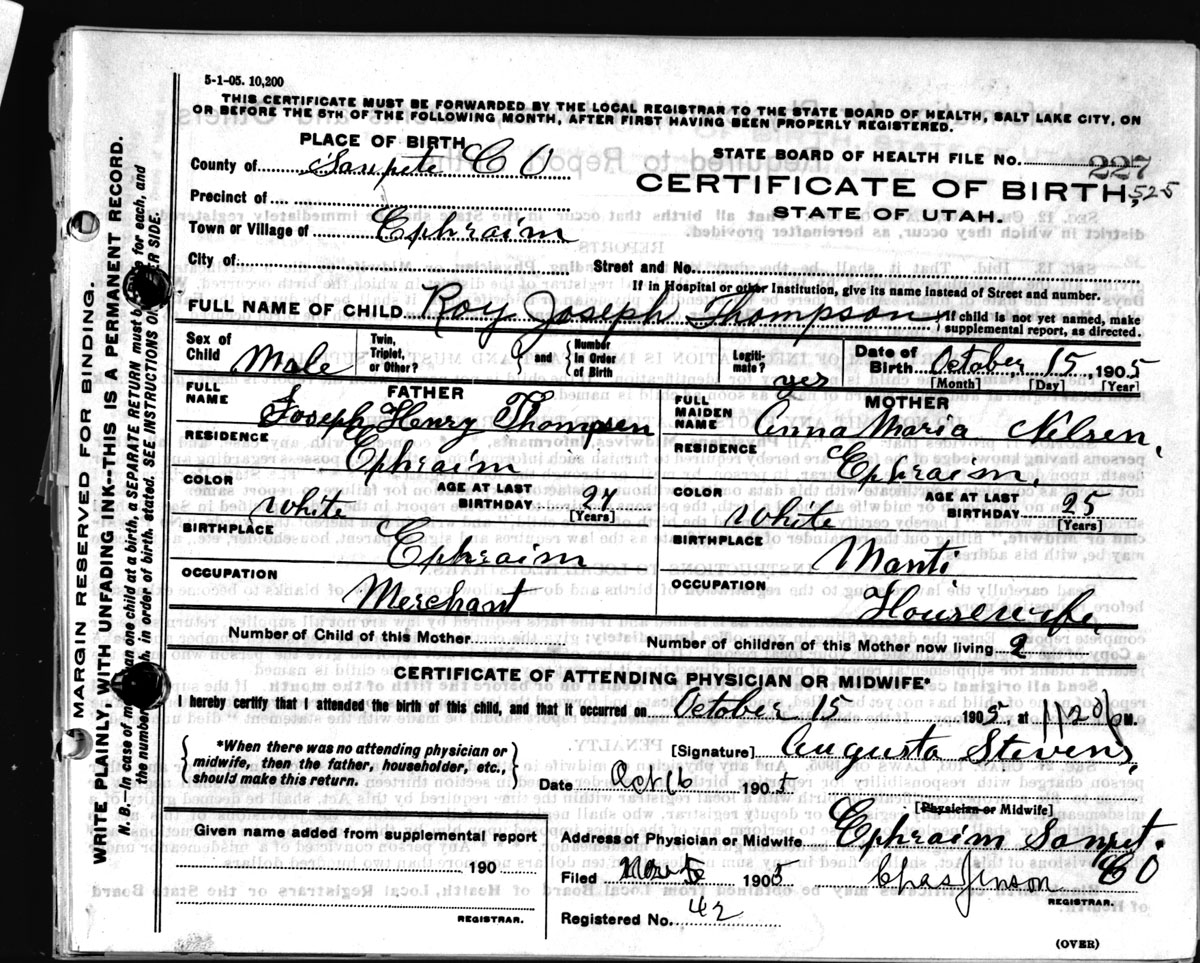 5-1-05. 10,200
THIS CERTIFICATE MUST BE FORWARDED BY THE LOCAL REGISTRAR TO THE STATE BOARD OF HEALTH, SALT LAKE CITY, ON
OR BEFORE THE 5TH OF THE FOLLOWING MONTH, AFTER FIRST HAVING BEEN PROPERLY REGISTERED.
PLACE OF BIRTH
STATE BOARD OF HEALTH FILE No. 227
County of Sanpete C O
CERTIFICATE OF BIRTH, 525
Precinct of
STATE OF UTAH.
Town or Village of Ephraim
City of Street and No.
If in Hospital or other Institution, give its name instead of Street and number.
FULL NAME OF CHILD Roy Joseph Thompson { If child is not yet named, make
supplemental report, as directed.
Sex of Child Male
Twin, Triplet, or Other? } and { Number in Order of Birth
Legitimate? yes
Date of Birth October 15, 1905
[Month] [Day] [Year]
FATHER
FULL NAME Joseph Henry Thompsen
RESIDENCE Ephraim
COLOR White
AGE AT LAST BIRTHDAY 27
[Years]
BIRTHPLACE Ephraim
OCCUPATION Merchant
MOTHER
FULL MAIDEN NAME Anna Maria Nilsen,
RESIDENCE Ephraim,
COLOR White
AGE AT LAST BIRTHDAY 25
[Years]
BIRTHPLACE Manti
OCCUPATION Housewife,
Number of Child of this Mother
Number of children of this Mother now living 2
CERTIFICATE OF ATTENDING PHYSICIAN OR MIDWIFE*
I hereby certify that I attended the birth of this child, and that it occurred on October 15 1905, at 1120 P M.
{ *When there was no attending physician or
midwife, then the father, householder, etc.,
should make this return. }
[Signature] Augusta Stevens,
Date Oct 16 1905
[Physician or Midwife]
Given name added from supplemental report
190
REGISTRAR.
Address of Physician or Midwife Ephraim Sanpt. CO
Filed 1905 Chas Jenson
REGISTRAR.
Registered No. 42
(OVER)
MARGIN RESERVED FOR BINDING.
WRITE PLAINLY, WITH UNFADING INK—THIS IS A PERMANENT RECORD.
N. B.—In case of more than one child at a birth, a SEPARATE RETURN must be made for each, and
the number of each, in order of birth, stated. SEE INSTRUCTIONS ON OTHER SIDE.